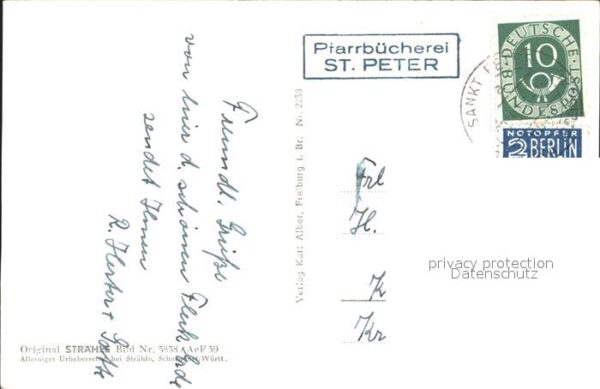 Pfarrbücherei
ST. PETER
10
DEUTSCHE
BUNDESPOST
SANKT
NOTOPFER
2 BERLIN
Freundl. Grüße
von hier d. schönen Fleck Erde
sendet Ihnen
Verlag Karl Alber, Freiburg i. Br. Nr. 2238
Frl
H.
K
Kr
privacy protection
Datenschutz
Original STRÄHLE Bild Nr. 3838 A AeF 39
Alleiniges Urheberrecht bei Strähle, Schorndorf Württ.